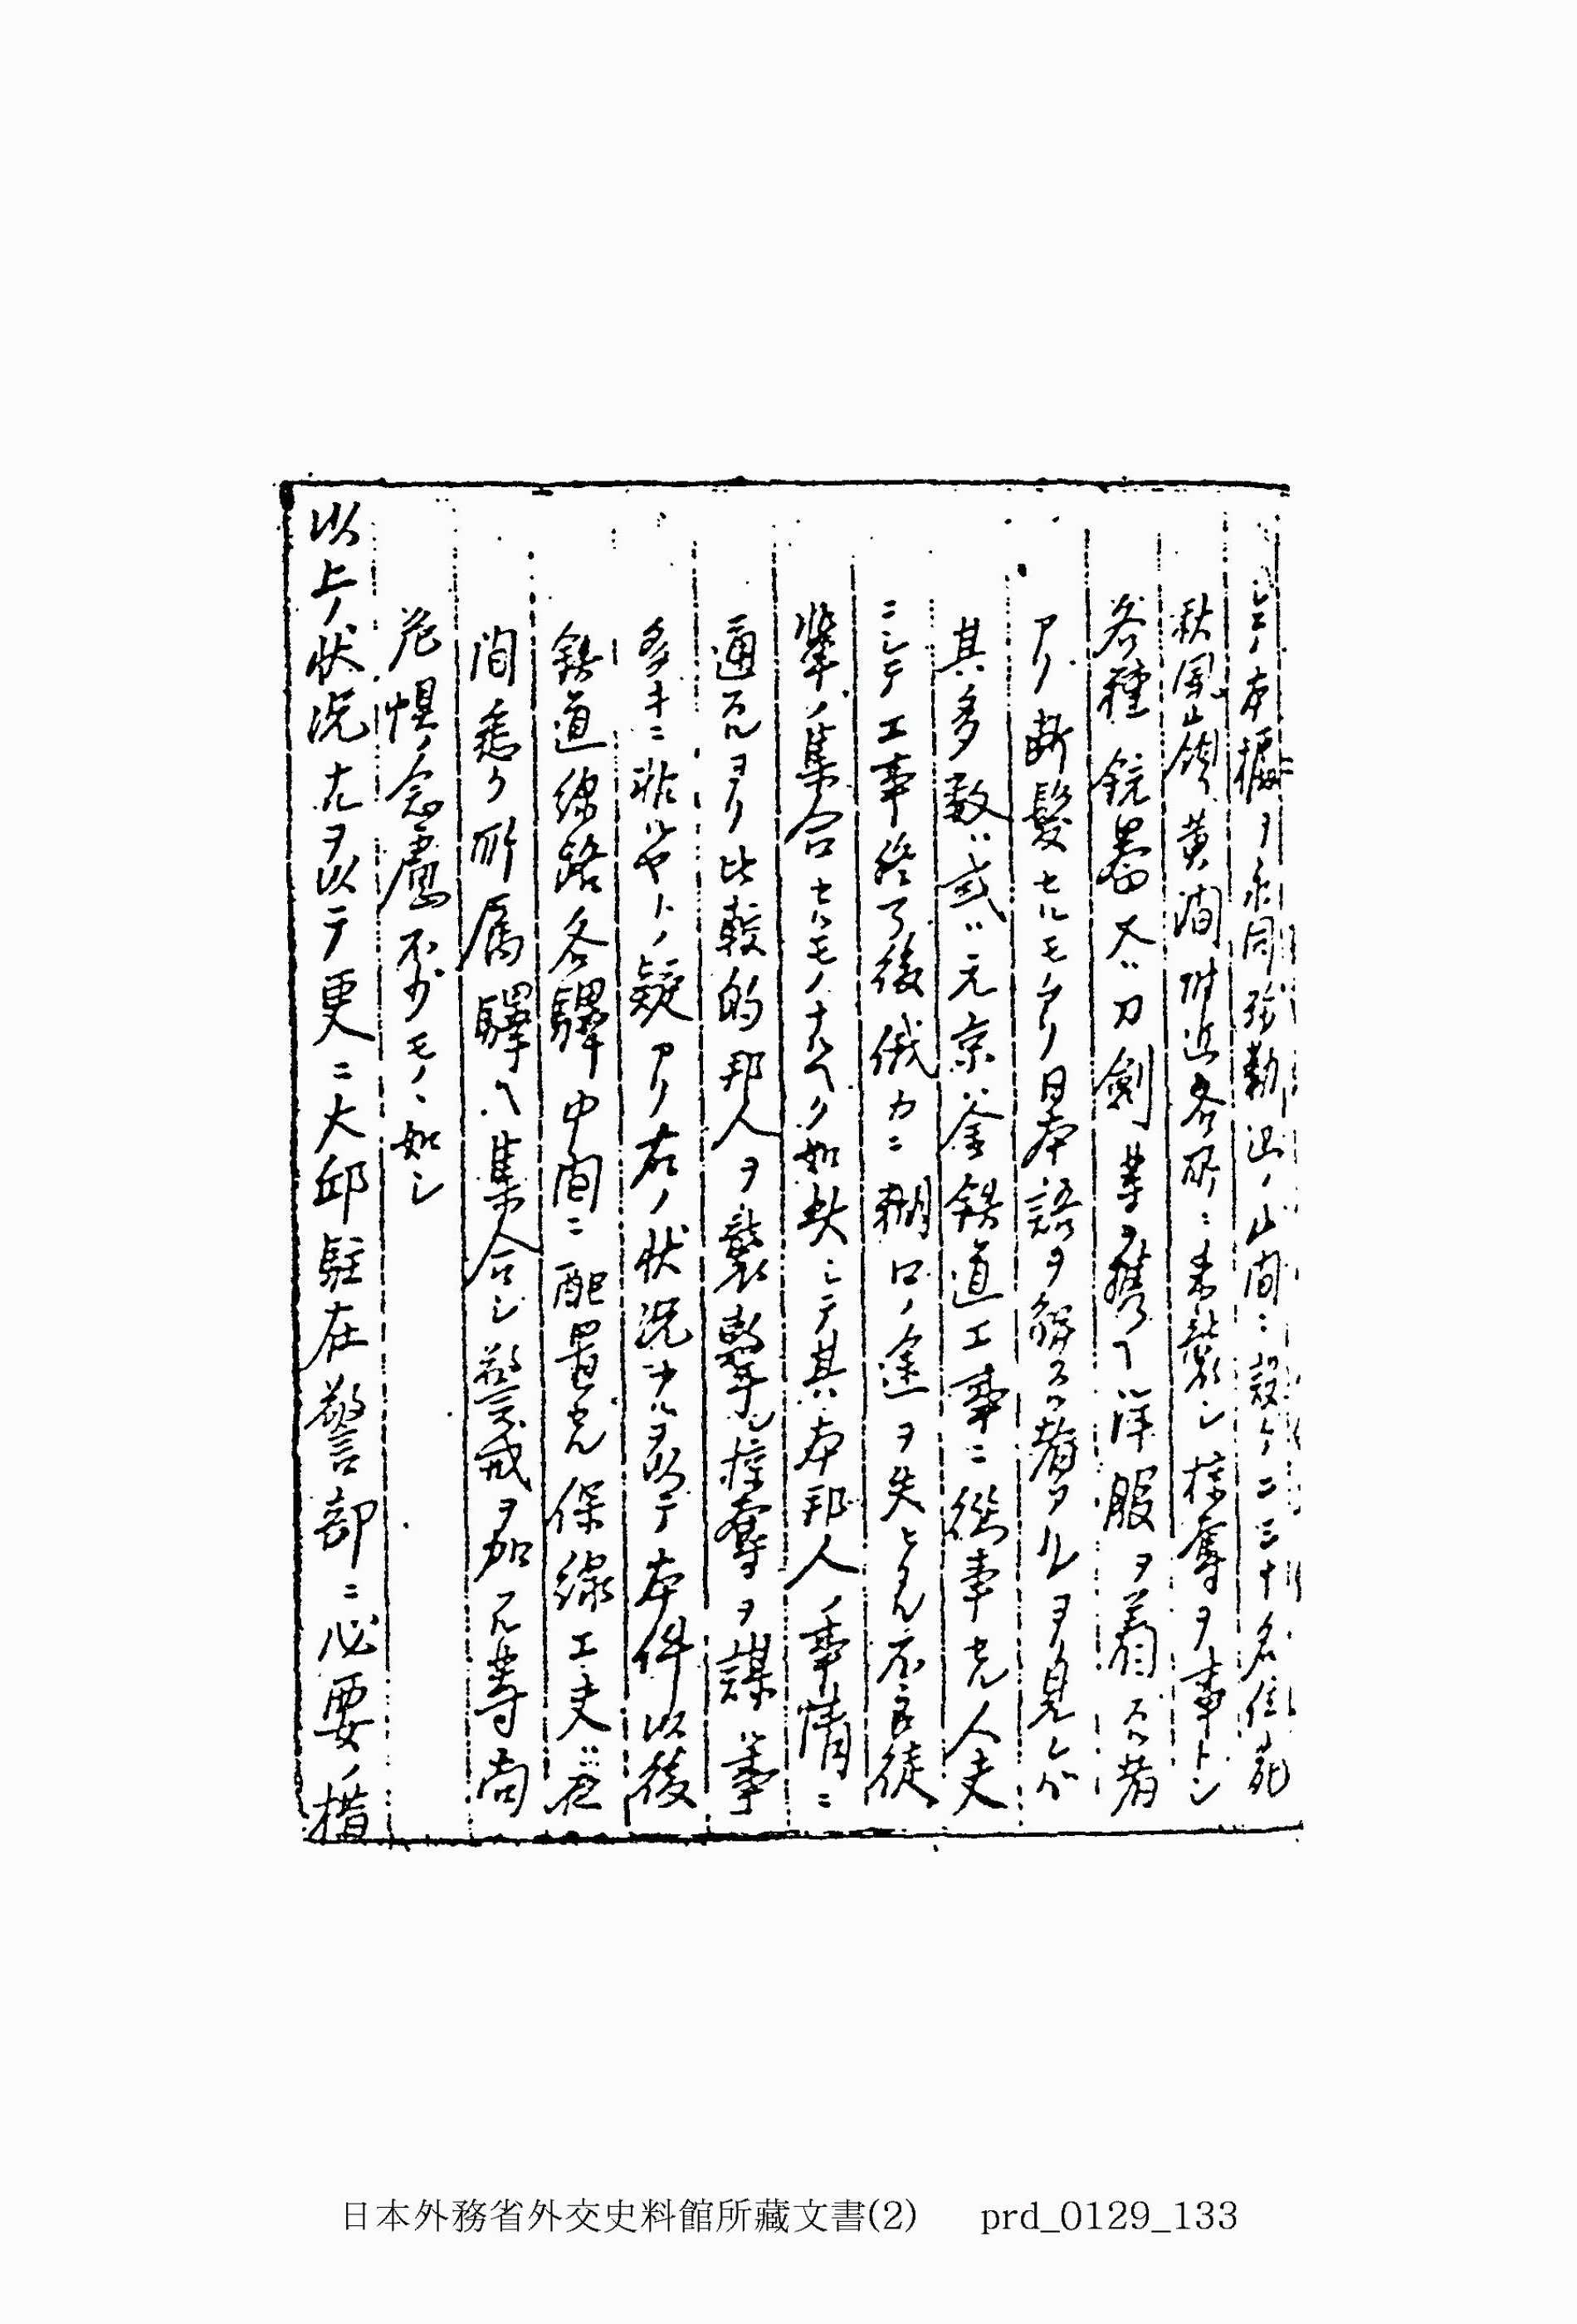 シテ本據ヲ永同 山ノ山間ニ設ケ二三十名
秋風嶺黄澗附近各所ニ来襲シ掠奪ヲ事トシ
各種銃器又ハ刀劍等ヲ携ヘ洋服ヲ着スル者
アリ断髪セルモノアリ日本語ヲ解スル者アルヲ見レバ
其多数ハ或ハ元京釜鉄道工事ニ従事セル人夫
ニシテ工事終了後俄カニ糊口ノ途ヲ失ヒタル不良徒
輩ノ集合セルモノナルベク如此シテ其本邦人ノ事情ニ
通スルヨリ比較的邦人ヲ襲撃シ掠奪ヲ謀ル事
多キニ非ルヤトノ疑アリ右ノ状況ナルヲ以テ本件以後
鉄道線路各驛中間ニ配置セル保線工夫ハ夜
間悉ク所属驛ヘ集合シ警戒ヲ加フル等尚
危惧ノ念慮不少モノヽ如シ
以上ノ状況ナルヲ以テ更ニ大邱駐在警部ニ必要ノ措
日本外務省外交史料館所藏文書(2) prd_0129_133